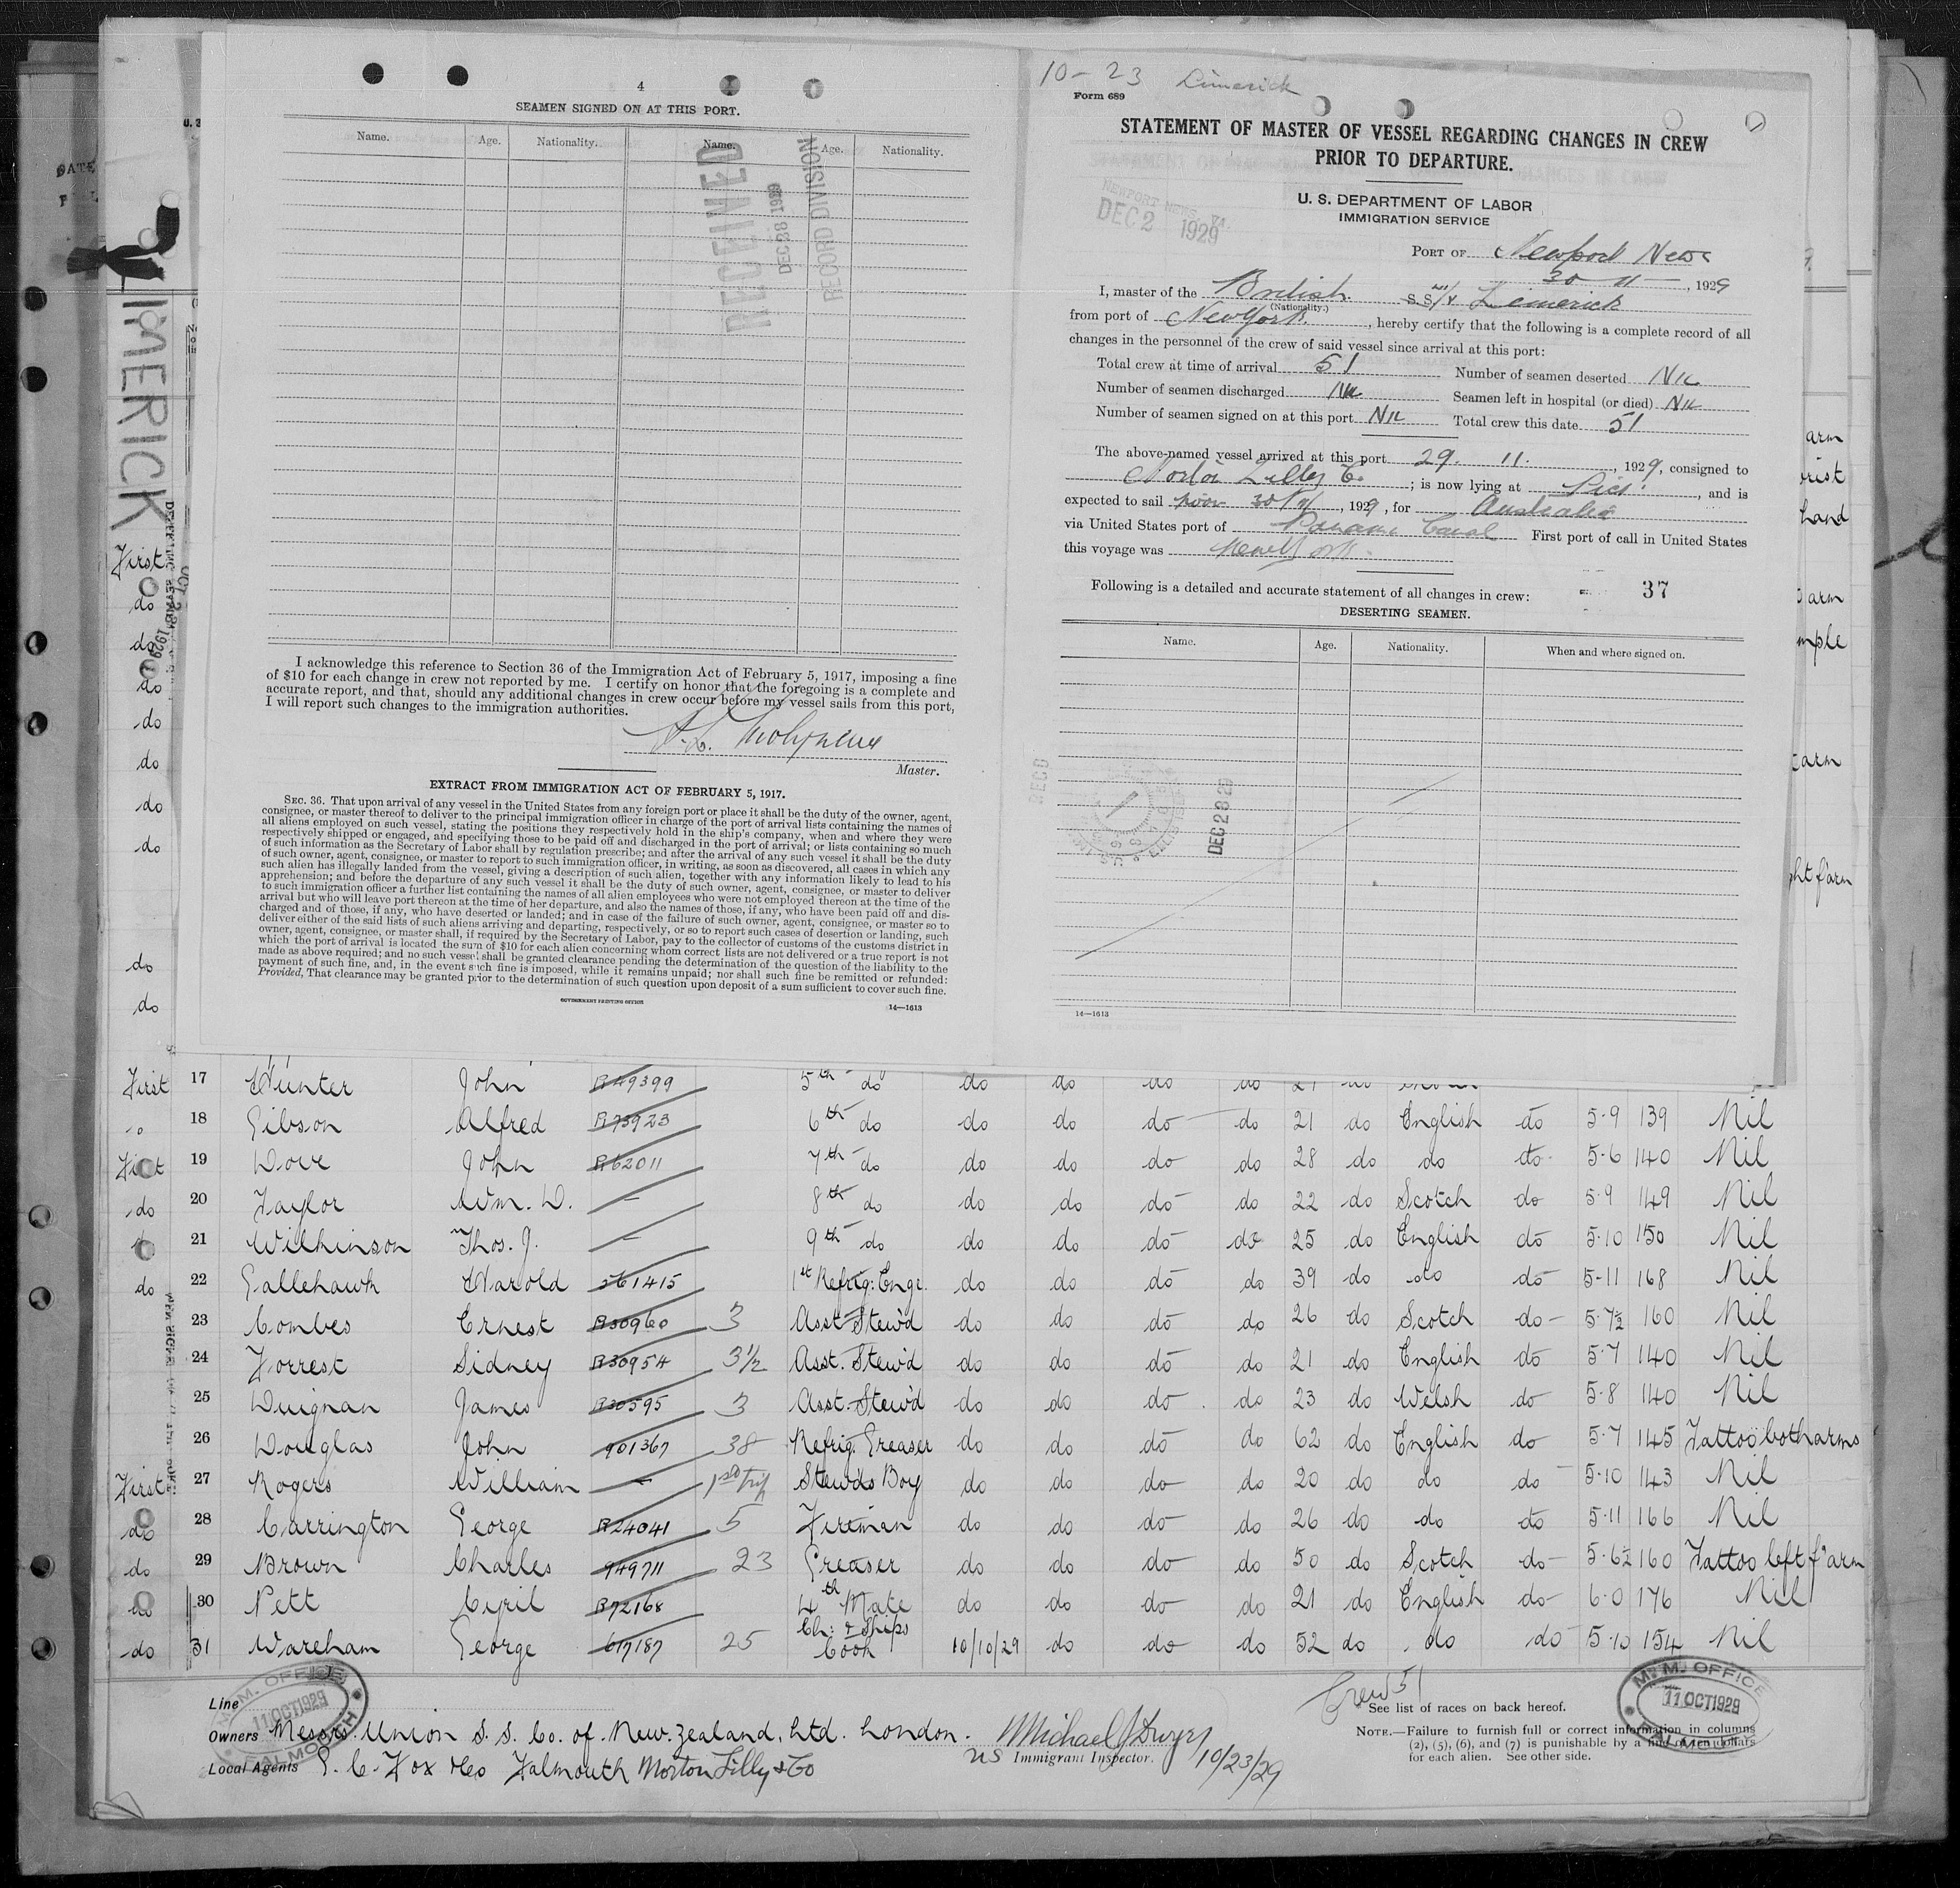 4
SEAMEN SIGNED ON AT THIS PORT.
Name. Age. Nationality. Name. Age. Nationality.
RECEIVED
DEC 28 1929
RECORD DIVISION
I acknowledge this reference to Section 36 of the Immigration Act of February 5, 1917, imposing a fine
of $10 for each change in crew not reported by me. I certify on honor that the foregoing is a complete and
accurate report, and that, should any additional changes in crew occur before my vessel sails from this port,
I will report such changes to the immigration authorities.
Master.
EXTRACT FROM IMMIGRATION ACT OF FEBRUARY 5, 1917.
SEC. 36. That upon arrival of any vessel in the United States from any foreign port or place it shall be the duty of the owner, agent,
consignee, or master thereof to deliver to the principal immigration officer in charge of the port of arrival lists containing the names of
all aliens employed on such vessel, stating the positions they respectively hold in the ship's company, when and where they were
respectively shipped or engaged, and specifying those to be paid off and discharged in the port of arrival; or lists containing so much
of such information as the Secretary of Labor shall by regulation prescribe; and after the arrival of any such vessel it shall be the duty
of such owner, agent, consignee, or master to report to such immigration officer, in writing, as soon as discovered, all cases in which any
such alien has illegally landed from the vessel, giving a description of such alien, together with any information likely to lead to his
apprehension; and before the departure of any such vessel it shall be the duty of such owner, agent, consignee, or master to deliver
to such immigration officer a further list containing the names of all alien employees who were not employed thereon at the time of the
arrival but who will leave port thereon at the time of her departure, and also the names of those, if any, who have been paid off and dis-
charged and of those, if any, who have deserted or landed; and in case of the failure of such owner, agent, consignee, or master so to
deliver either of the said lists of such aliens arriving and departing, respectively, or so to report such cases of desertion or landing, such
owner, agent, consignee, or master shall, if required by the Secretary of Labor, pay to the collector of customs of the customs district in
which the port of arrival is located the sum of $10 for each alien concerning whom correct lists are not delivered or a true report is not
made as above required; and no such vessel shall be granted clearance pending the determination of the question of the liability to the
payment of such fine, and, in the event such fine is imposed, while it remains unpaid; nor shall such fine be remitted or refunded:
Provided, That clearance may be granted prior to the determination of such question upon deposit of a sum sufficient to cover such fine.
GOVERNMENT PRINTING OFFICE
14—1613
10-23 Limerick
Form 689
STATEMENT OF MASTER OF VESSEL REGARDING CHANGES IN CREW
PRIOR TO DEPARTURE.
U. S. DEPARTMENT OF LABOR
IMMIGRATION SERVICE
NEWPORT NEWS, VA
DEC 2 1929
PORT OF Newport News
30 11, 1929
I, master of the British S. S. Limerick
(Nationality.)
from port of New York, hereby certify that the following is a complete record of all
changes in the personnel of the crew of said vessel since arrival at this port:
Total crew at time of arrival 51 Number of seamen deserted Nil
Number of seamen discharged Nil Seamen left in hospital (or died) Nil
Number of seamen signed on at this port Nil Total crew this date 51
The above-named vessel arrived at this port 29. 11., 1929, consigned to
Norton Lilly Co; is now lying at Pier, and is
expected to sail noon 30/11, 1929, for Australia
via United States port of Panama Canal First port of call in United States
this voyage was New York.
Following is a detailed and accurate statement of all changes in crew: 37
DESERTING SEAMEN.
Name. Age. Nationality. When and where signed on.
DEC 28 29
14—1613
LIMERICK
First
do
do
do
do
do
do
do
do
do
arm
hand
arm
arm
First 17 Hunter John R49399 5th do do do do do
18 Gibson Alfred R73923 6th do do do do do 21 do English do 5-9 139 Nil
First 19 Dove John R62011 7th do do do do do 28 do do do 5-6 140 Nil
do 20 Taylor Wm. D. — 8th do do do do do 22 do Scotch do 5-9 149 Nil
21 Wilkinson Thos. J. — 9th do do do do do 25 do English do 5-10 150 Nil
do 22 Gallehawk Harold 561415 1st Refrig: Engr. do do do do 39 do do do 5-11 168 Nil
23 Combes Ernest R30960 3 Asst Stew'd do do do do 26 do Scotch do 5-7½ 160 Nil
24 Forrest Sidney R30954 3½ Asst. Stew'd do do do do 21 do English do 5-7 140 Nil
25 Duignan James R30595 3 Asst. Stew'd do do do do 23 do Welsh do 5-8 140 Nil
26 Douglas John 901367 38 Refrig. Greaser do do do do 62 do English do 5-7 145 Tattoo both arms
First 27 Rogers William — 1st trip Stewds Boy do do do do 20 do do do 5-10 143 Nil
do 28 Carrington George R24041 5 Fireman do do do do 26 do do do 5-11 166 Nil
do 29 Brown Charles 949711 23 Greaser do do do do 50 do Scotch do 5-6½ 160 Tattoo left f'arm
do 30 Pett Cyril R72168 4th Mate do do do do 21 do English do 6-0 176 Nil
do 31 Wareham George 617187 25 Ch: & Ships Cook 10/10/29 do do do 52 do do do 5-10 154 Nil
M.M. OFFICE
11 OCT 1929
FALMOUTH
Line
Owners Messrs. Union S. S. Co. of New Zealand, Ltd. London.
Local Agents G. C. Fox & Co Falmouth Norton Lilly & Co
Michael J Dwyer
US Immigrant Inspector. 10/23/29
Crew 51
See list of races on back hereof.
NOTE.—Failure to furnish full or correct information in columns
(2), (5), (6), and (7) is punishable by a fine of ten dollars
for each alien. See other side.
M.M. OFFICE
11 OCT 1929
FALMOUTH